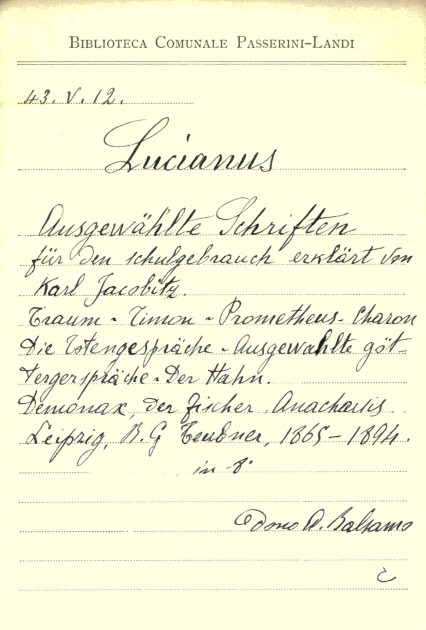 BIBLIOTECA COMUNALE PASSERINI-LANDI
43. V. 12.
Lucianus
Ausgewählte Schriften
für den schulgebrauch erklärt von
Karl Jacobitz.
Traum - Timon - Prometheus - Charon
Die Totengespräche - Ausgewahlte göt-
tergerspräche - Der Hahn.
Demonax, der fischer Anacharsis
Leipzig, B. G Teubner, 1865 - 1894.
in - 8°
Dono A. Balsamo
C